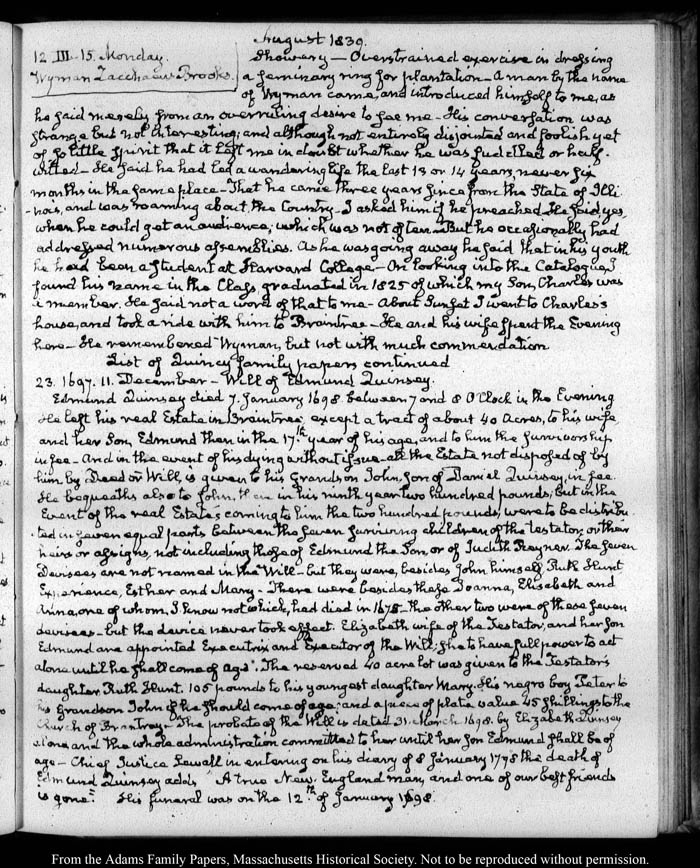 August 1839.
12 III. 15. Monday.
Wyman Zacchaeus Brooks.
Showery — Overstrained exercise in dressing
a seminary ring for plantation — A man by the name
of Wyman came, and introduced himself to me, as
he said merely from an overruling desire to see me — His conversation was
strange but not interesting; and although not entirely disjointed and foolish yet
of so little spirit that it left me in doubt whether he was fuddled or half-
witted — He said he had led a wandering life the last 13 or 14 years, never six
months in the same place — That he came three years since from the State of Illi
-nois, and was roaming about the Country — I asked him if he preached. He said, yes,
when he could get an audience; which was not often. But he occasionally had
addressed numerous assemblies. As he was going away he said that in his youth
he had been a student at Harvard College — On looking into the Catalogue, I
found his name in the Class graduated in 1825 of which my Son, Charles was
a member. He said not a word of that to me — About Sunset I went to Charles's
house, and took a ride with him to Braintree — He and his wife spent the Evening
here — He remembered Wyman, but not with much commendation
List of Quincy family papers continued
23. 1697. 11. December — Will of Edmund Quinsey.
Edmund Quinsey died 7. January 1698. between 7 and 8 O'Clock in the Evening
He left his real Estate in Braintree, except a tract of about 40 Acres, to his wife
and her Son, Edmund then in the 17th year of his age, and to him the survivorship
in fee — And in the event of his dying without issue all the Estate not disposed of by
him by Deed or Will, is given to his Grandson John, Son of Daniel Quinsey, in fee.
He bequeaths also to John, then in his ninth year two hundred pounds; but in the
Event of the real Estate's coming to him the two hundred pounds, were to be distribu
-ted in seven equal parts between the seven surviving children of the testator, or their
heirs or assigns, not including those of Edmund the Son, or of Judith Reyner. The seven
Devisees are not named in the Will — but they were, besides John himself, Ruth Hunt
Experience, Esther and Mary — There were besides these Joanna, Elisabeth and
Anna, one of whom, I know not which, had died in 1675 — the other two were of these seven
devisees — but the device never took effect. Elizabeth wife of the Testator, and her Son
Edmund are appointed Executrix and Executor of the Will; she to have full power to act
alone until he shall come of age. The reserved 40 acre lot was given to the Testator's
daughter Ruth Hunt. 105 pounds to his youngest daughter Mary. His negro boy Peter to
his Grandson John if he should come of age; and a piece of plate value 45 shillings to the
Church of Braintrey — The probate of the Will is dated 31. March 1698. by Elizabeth Quinsey
alone and the whole administration committed to her until her Son Edmund shall be of
age — Chief Justice Sewall in entering on his diary of 8 January 1798 the death of
Edmund Quinsey adds, "A true New England man, and one of our best friends
is gone." His funeral was on the 12th of January 1698.
From the Adams Family Papers, Massachusetts Historical Society. Not to be reproduced without permission.